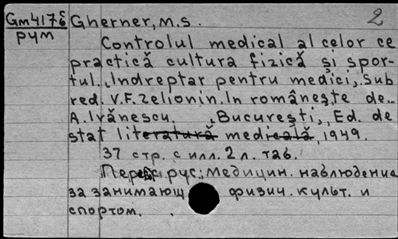 2
Gm4176 Gherner, M.S.
рум
Controlul medical al celor ce
practică cultura fizică și spor-
tul. Indreptar pentru medici, sub
red. V.F. Zelionin. In românește de
A. Ivănescu. București, Ed. de
stat literatură medicală, 1949.
37 стр. с илл. 2 л. таб.
рус.: Медицин. наблюдение
за занимающ физич. культ. и
спортом.